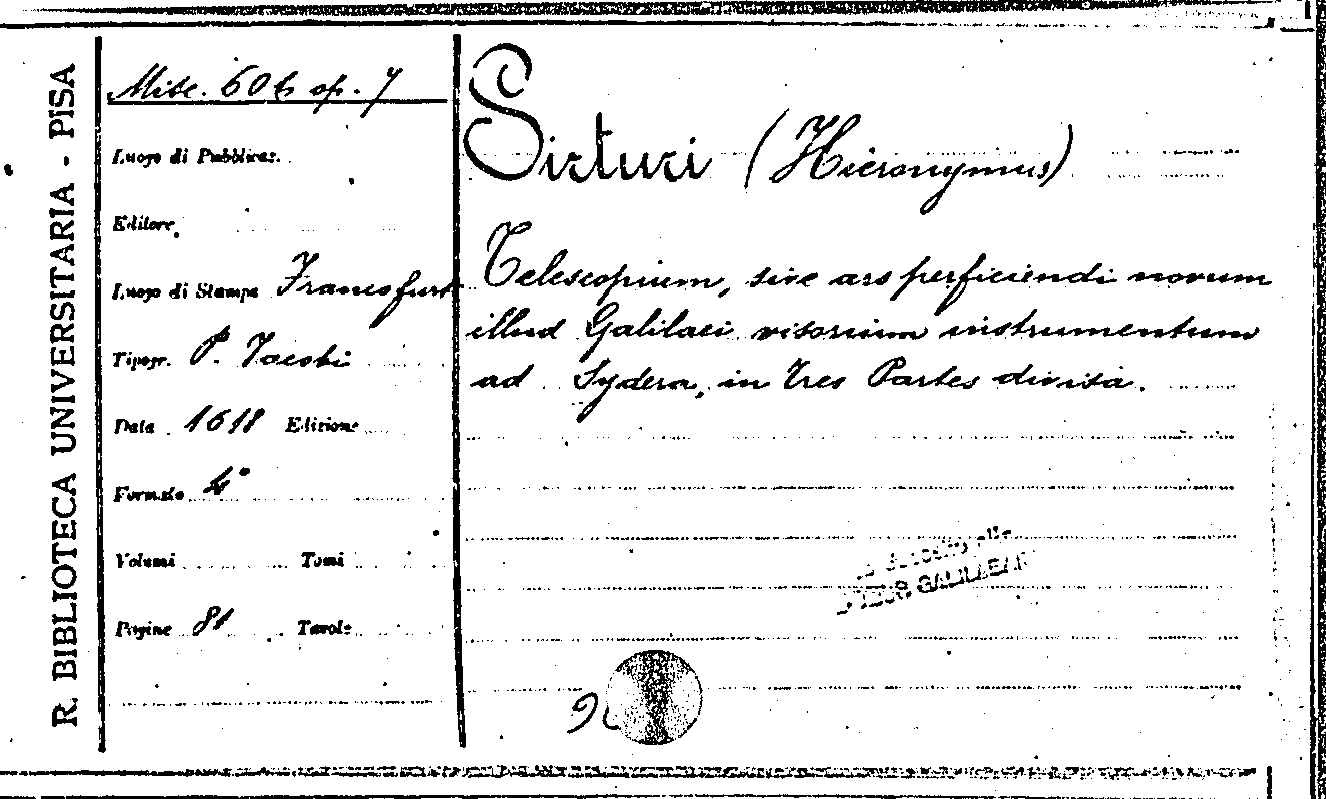 R. BIBLIOTECA UNIVERSITARIA - PISA
Misc. 606 op. 7
Luogo di Pubblicaz.
Editore
Luogo di Stampa Francofurti
Tipogr. P. Iacobi
Data 1618 Edizione
Formato 4°
Volumi Tomi
Pagine 81 Tavole
Sirturi (Hieronymus)
Telescopium, sive ars perficiendi novum
illud Galilaei visorium instrumentum
ad Sydera, in tres Partes divisa.
GALILAEAN